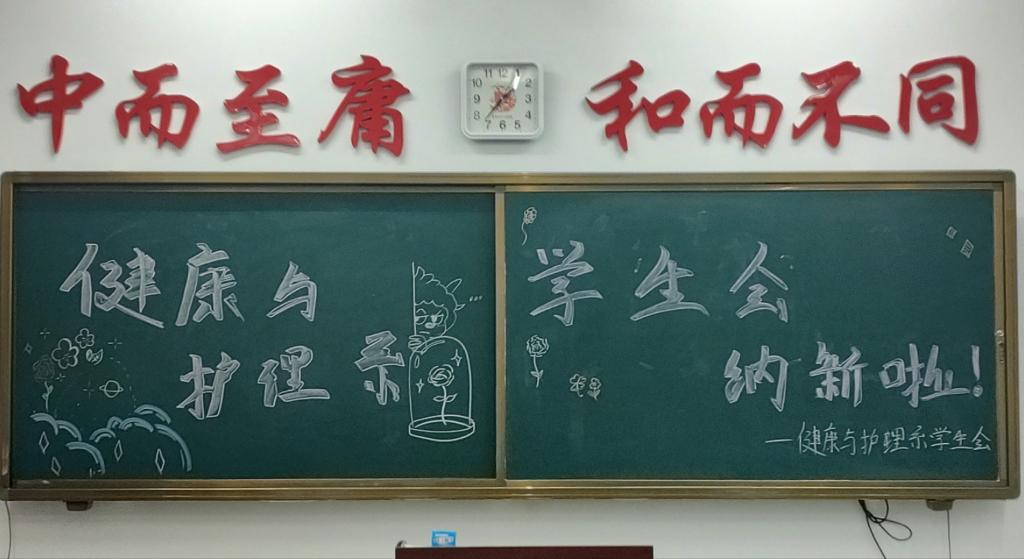 中而至庸
和而不同
健康与
护理系
学生会
纳新啦!
—健康与护理系学生会